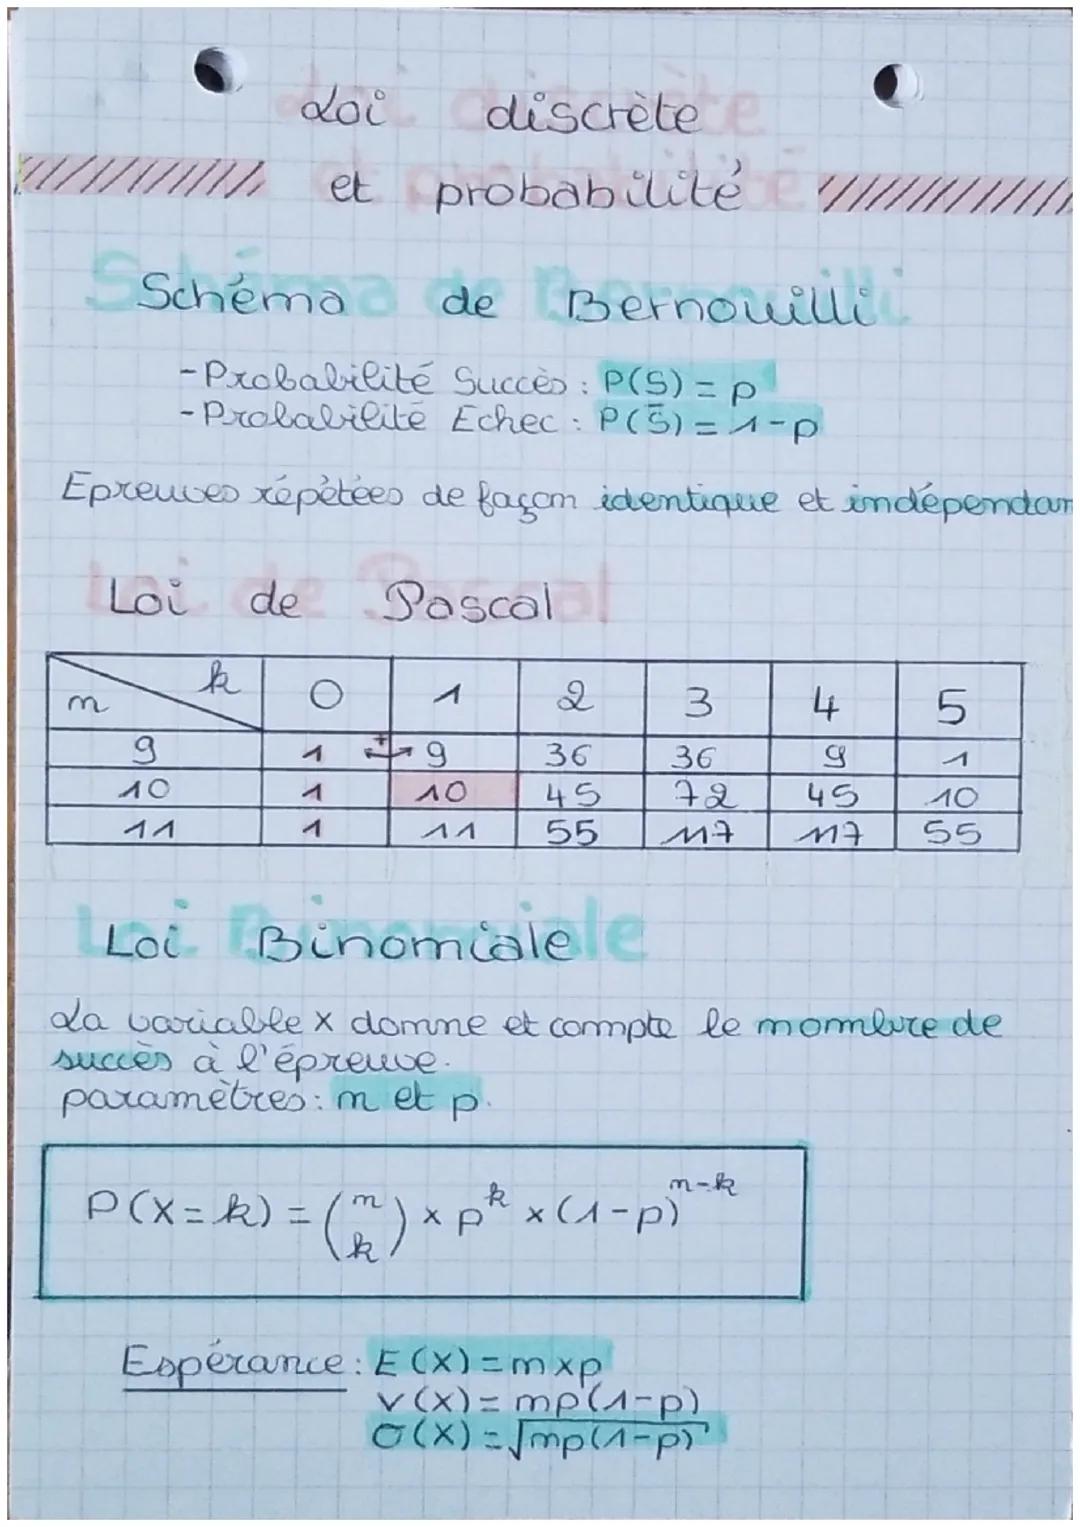 Loi discrète
et probabilité
Schéma de Bernouilli
- Probabilité Succès : P(S) = p
- Probabilité Echec : P(S̅) = 1-p
Epreuves répètées de façon identique et indépendan
Loi de Pascal
n k 0 1 2 3 4 5
9 1 + 9 36 36 9 1
10 1 10 45 72 45 10
11 1 11 55 117 117 55
Loi Binomiale
La variable X donne et compte le nombre de
succès à l'épreuve.
paramètres : n et p.
P(X=k) = (n k) × p^k × (1-p)^n-k
Espérance : E(X) = n×p
V(X) = np(1-p)
σ(X) = √np(1-p)